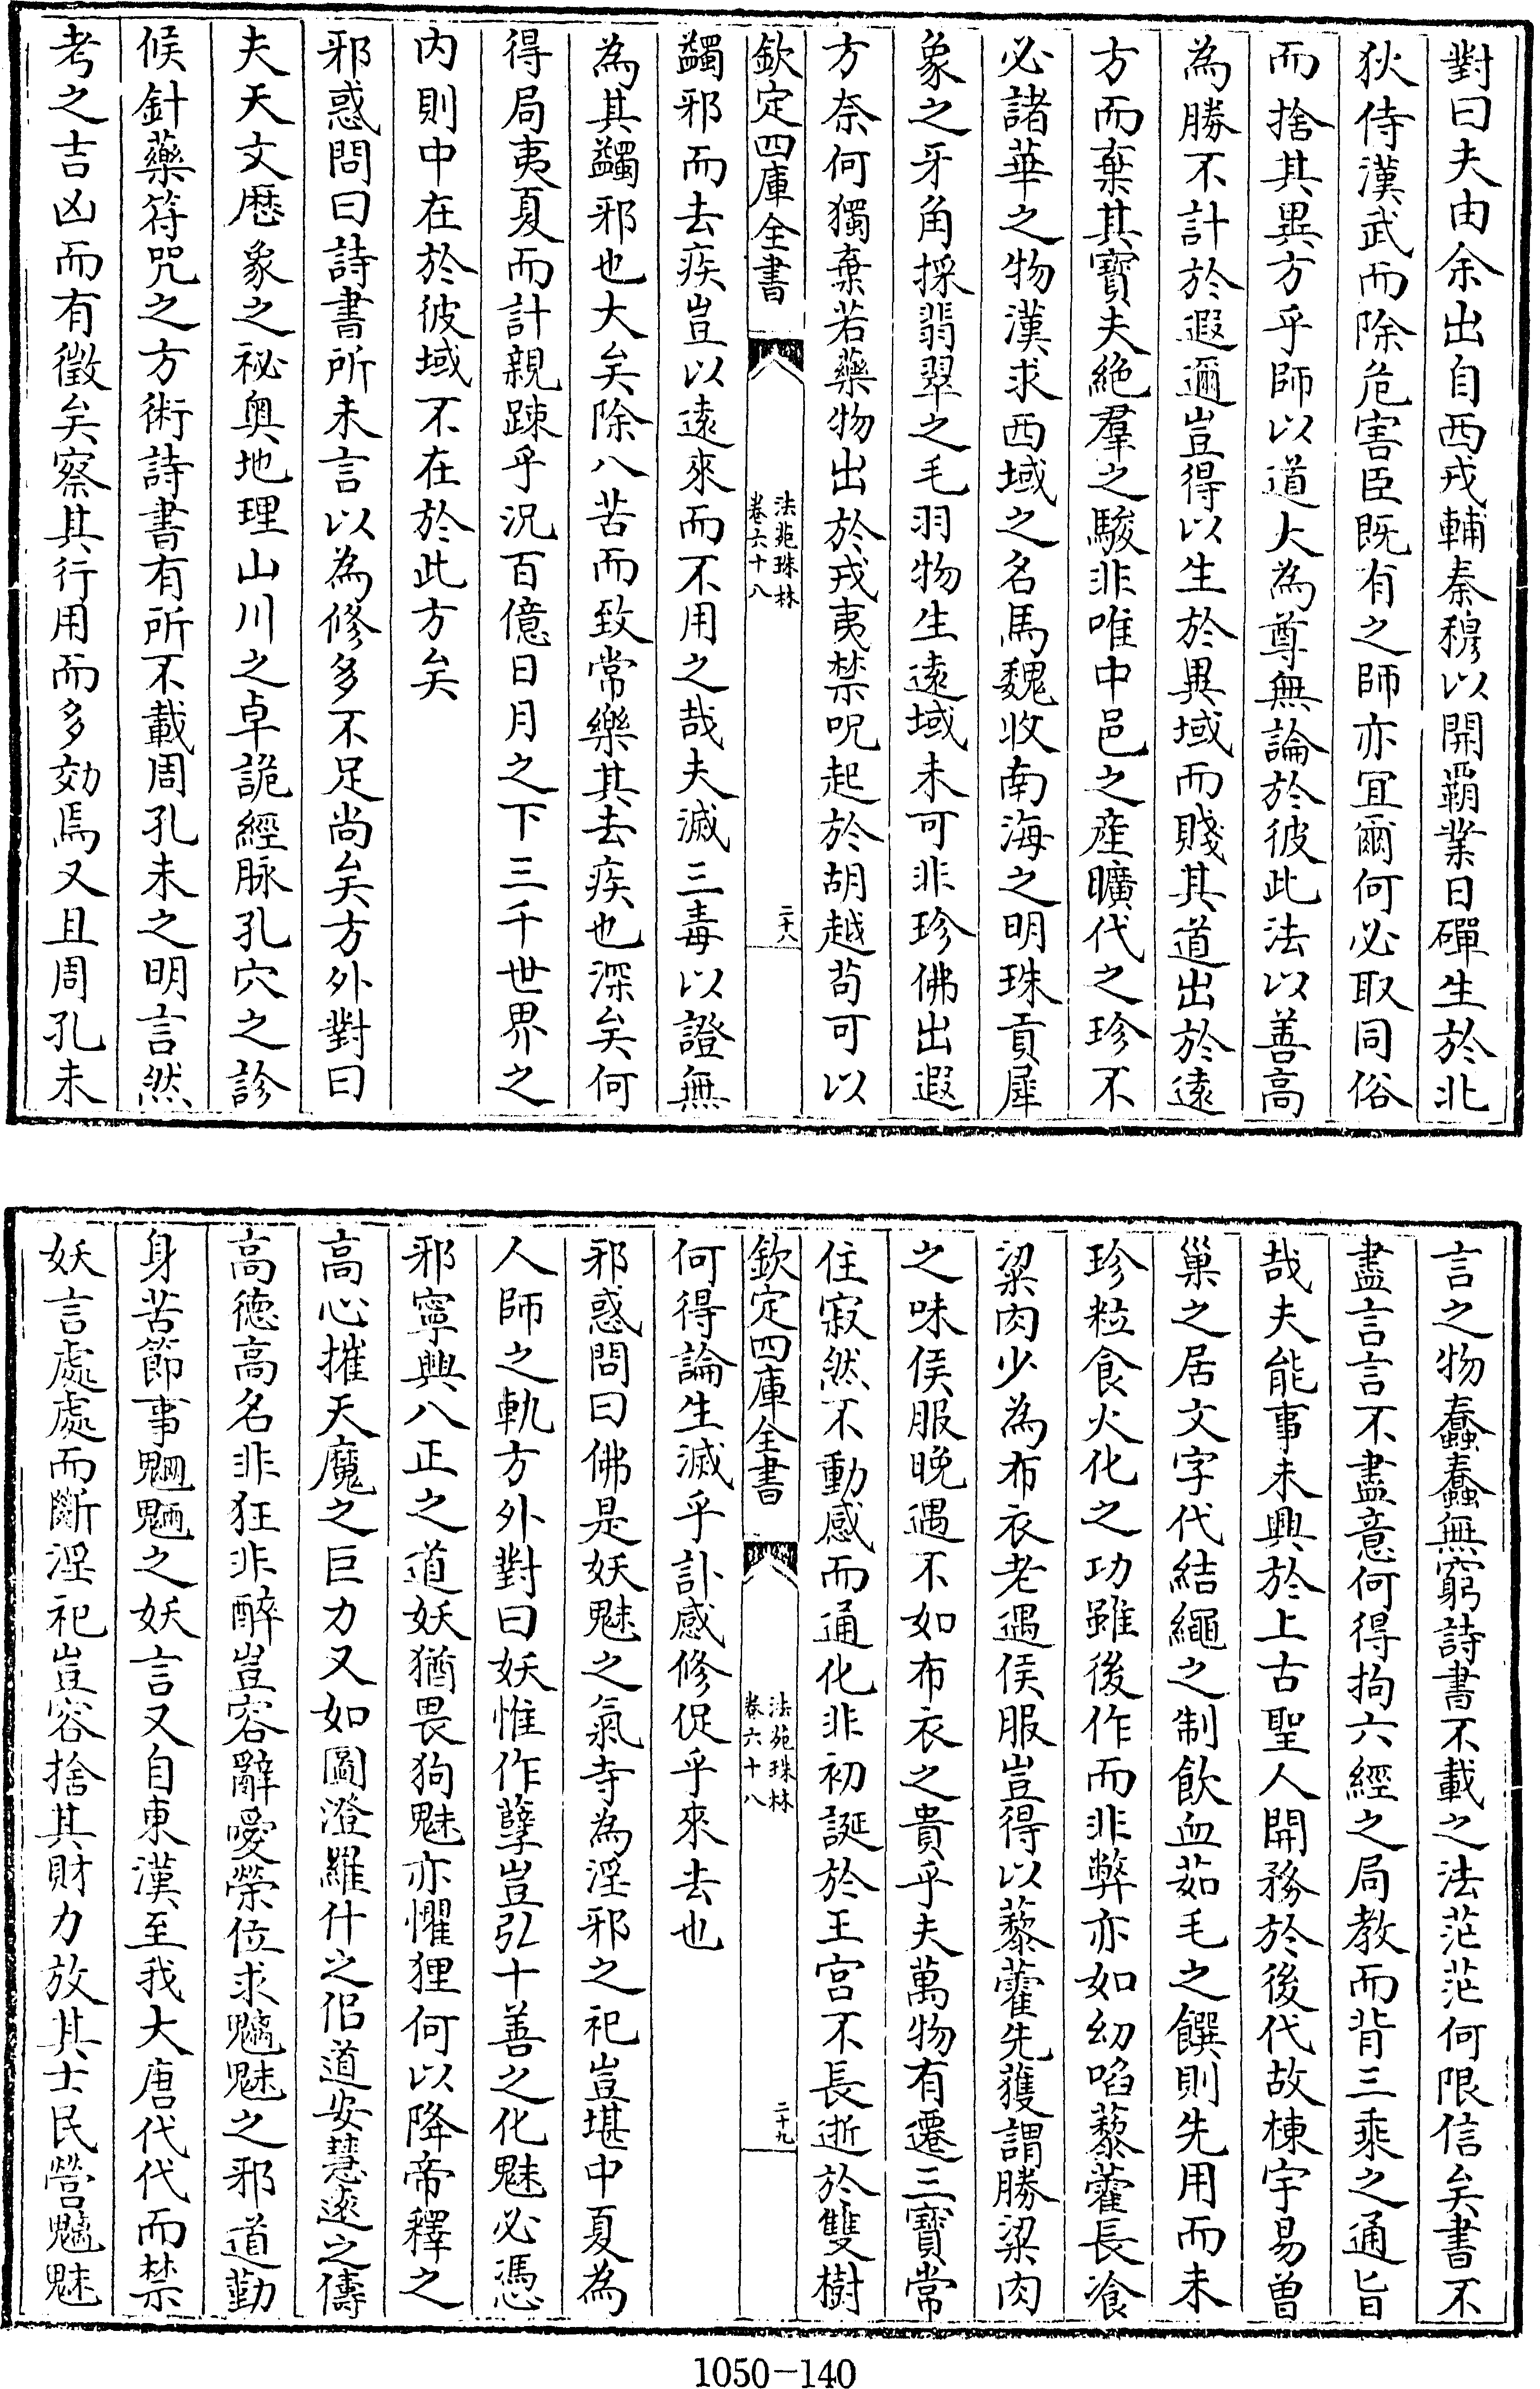 對曰夫由余出自西戎輔秦穆以開覇業日磾生於北
狄侍漢武而除危害臣既有之師亦宜爾何必取同俗
而捨其異方乎師以道大為尊無論於彼此法以善高
為勝不計於遐邇豈得以生於異域而賤其道出於遠
方而棄其寳夫絶羣之駿非唯中邑之産曠代之珍不
必諸華之物漢求西域之名馬魏收南海之明珠貢犀
象之牙角採翡翠之毛羽物生遠域未可非珍佛出遐
方奈何獨棄若藥物出於戎夷禁呪起於胡越茍可以
欽定四庫全書
法苑珠林
卷六十八
二十八
蠲邪而去疾豈以遠來而不用之哉夫滅三毒以證無
為其蠲邪也大矣除八苦而致常樂其去疾也深矣何
得局夷夏而計親踈乎況百億日月之下三千世界之
内則中在於彼域不在於此方矣
邪惑問曰詩書所未言以為修多不足尚矣方外對曰
夫天文歴象之祕奥地理山川之卓詭經脉孔穴之診
候針藥符咒之方術詩書有所不載周孔未之明言然
考之吉凶而有徵矣察其行用而多効焉又且周孔未
言之物蠢蠢無窮詩書不載之法茫茫何限信矣書不
盡言言不盡意何得拘六經之局教而背三乘之通旨
哉夫能事未興於上古聖人開務於後代故棟宇易曾
巢之居文字代結繩之制飲血茹毛之饌則先用而未
珍粒食火化之功雖後作而非弊亦如幼啗藜藿長飡
粱肉少為布衣老遇侯服豈得以藜藿先獲謂勝粱肉
之味侯服晚遇不如布衣之貴乎夫萬物有遷三寳常
住寂然不動感而通化非初誕於王宫不長逝於雙樹
欽定四庫全書
法苑珠林
卷六十八
二十九
何得論生滅乎訃感修促乎來去也
邪惑問曰佛是妖魅之氣寺為淫邪之祀豈堪中夏為
人師之軌方外對曰妖惟作孽豈弘十善之化魅必憑
邪寧興八正之道妖猶畏狗魅亦懼狸何以降帝釋之
高心摧天魔之巨力又如圖澄羅什之侣道安慧遠之儔
高德高名非狂非醉豈容辭愛榮位求魑魅之邪道勤
身苦節事魍魎之妖言又自東漢至我大唐代代而禁
妖言處處而斷淫祀豈容捨其財力放其士民營魑魅
1050-140